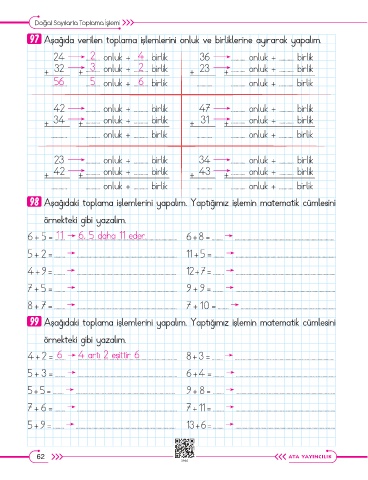 Doğal Sayılarla Toplama İşlemi
97 Aşağıda verilen toplama işlemlerini onluk ve birliklerine ayırarak yapalım.
24 → 2 onluk + 4 birlik 36 → ...... onluk + ...... birlik
+ 32 → + 3 onluk + 2 birlik + 23 → + ...... onluk + ...... birlik
56 5 onluk + 6 birlik ...... ...... onluk + ...... birlik
42 → ...... onluk + ...... birlik 47 → ...... onluk + ...... birlik
+ 34 → + ...... onluk + ...... birlik + 31 → + ...... onluk + ...... birlik
...... ...... onluk + ...... birlik ...... ...... onluk + ...... birlik
23 → ...... onluk + ...... birlik 34 → ...... onluk + ...... birlik
+ 42 → + ...... onluk + ...... birlik + 43 → + ...... onluk + ...... birlik
...... ...... onluk + ...... birlik ...... ...... onluk + ...... birlik
98 Aşağıdaki toplama işlemlerini yapalım. Yaptığımız işlemin matematik cümlesini
örnekteki gibi yazalım.
6 + 5 = 11 → 6, 5 daha 11 eder. 6 + 8 = ...... →
5 + 2 = ...... → 11 + 5 = ...... →
4 + 9 = ...... → 12 + 7 = ...... →
7 + 5 = ...... → 9 + 9 = ...... →
8 + 7 = ...... → 7 + 10 = ...... →
99 Aşağıdaki toplama işlemlerini yapalım. Yaptığımız işlemin matematik cümlesini
örnekteki gibi yazalım.
4 + 2 = 6 → 4 artı 2 eşittir 6 8 + 3 = ...... →
5 + 3 = ...... → 6 + 4 = ...... →
5 + 5 = ...... → 9 + 8 = ...... →
7 + 6 = ...... → 7 + 11 = ...... →
5 + 9 = ...... → 13 + 6 = ...... →
62 ATA YAYINCILIK